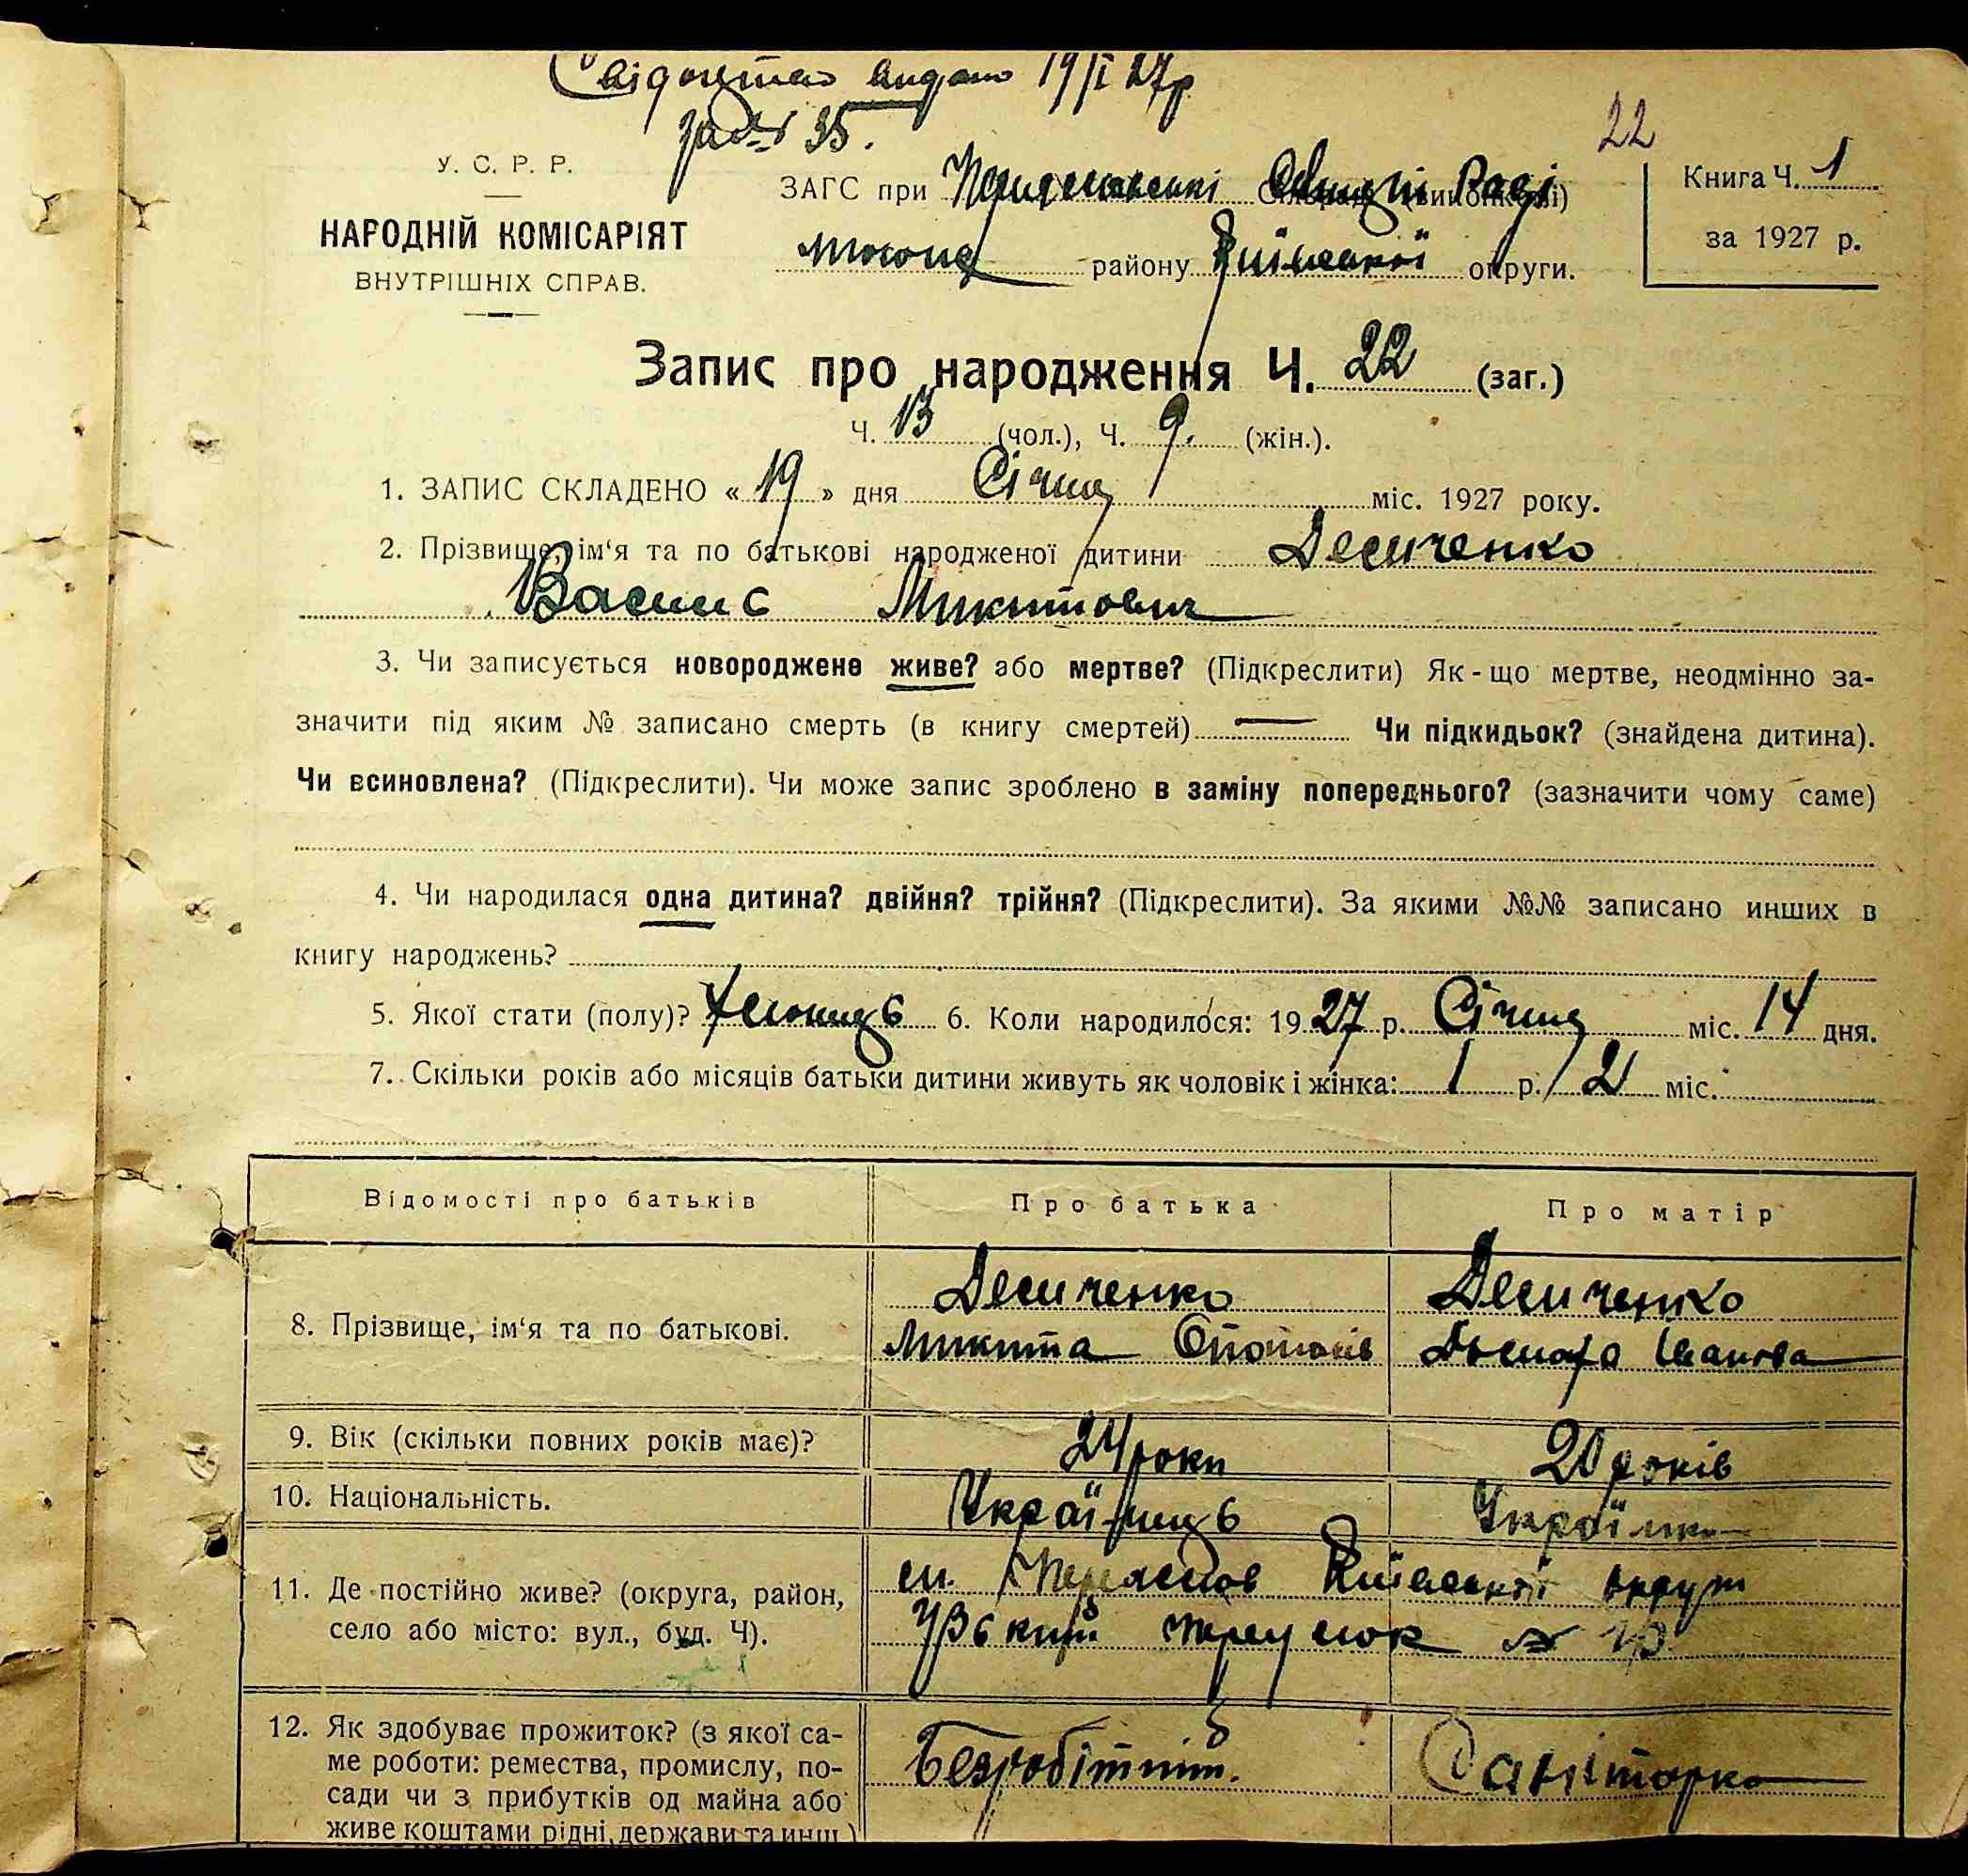 Свідоцтво видано 19/I 27р
за № 35.
22
У. С. Р. Р.
НАРОДНІЙ КОМІСАРІЯТ
ВНУТРІШНІХ СПРАВ.
ЗАГС при Сільраді (виконкомі)
району Київської округи.
Книга Ч. 1
за 1927 р.
Запис про народження Ч. 22 (заг.)
Ч. 13 (чол.), Ч. 9. (жін.).
1. ЗАПИС СКЛАДЕНО « 19 » дня Січня міс. 1927 року.
2. Прізвище, ім‘я та по батькові народженої дитини Десиченко
Василь Микитович
3. Чи записується новороджене живе? або мертве? (Підкреслити) Як - що мертве, неодмінно за-
значити під яким № записано смерть (в книгу смертей) — Чи підкидьок? (знайдена дитина).
Чи всиновлена? (Підкреслити). Чи може запис зроблено в заміну попереднього? (зазначити чому саме)
4. Чи народилася одна дитина? двійня? трійня? (Підкреслити). За якими №№ записано инших в
книгу народжень?
5. Якої стати (полу)? Хлопець 6. Коли народилося: 1927 р. Січня міс. 14 дня.
7. Скільки років або місяців батьки дитини живуть як чоловік і жінка: 1 р. 2 міс.
Відомості про батьків Про батька Про матір
8. Прізвище, ім‘я та по батькові.
Десиченко Десиченко
Микита Іванова
9. Вік (скільки повних років має)? 24 роки 20 років
10. Національність. Українець Українка
11. Де постійно живе? (округа, район,
село або місто: вул., буд. Ч).
м. Переяслов Київської округи
переулок №
12. Як здобуває прожиток? (з якої са-
ме роботи: ремества, промислу, по-
сади чи з прибутків од майна або
живе коштами рідні, держави та инш.)
Безробітний. Санітарка